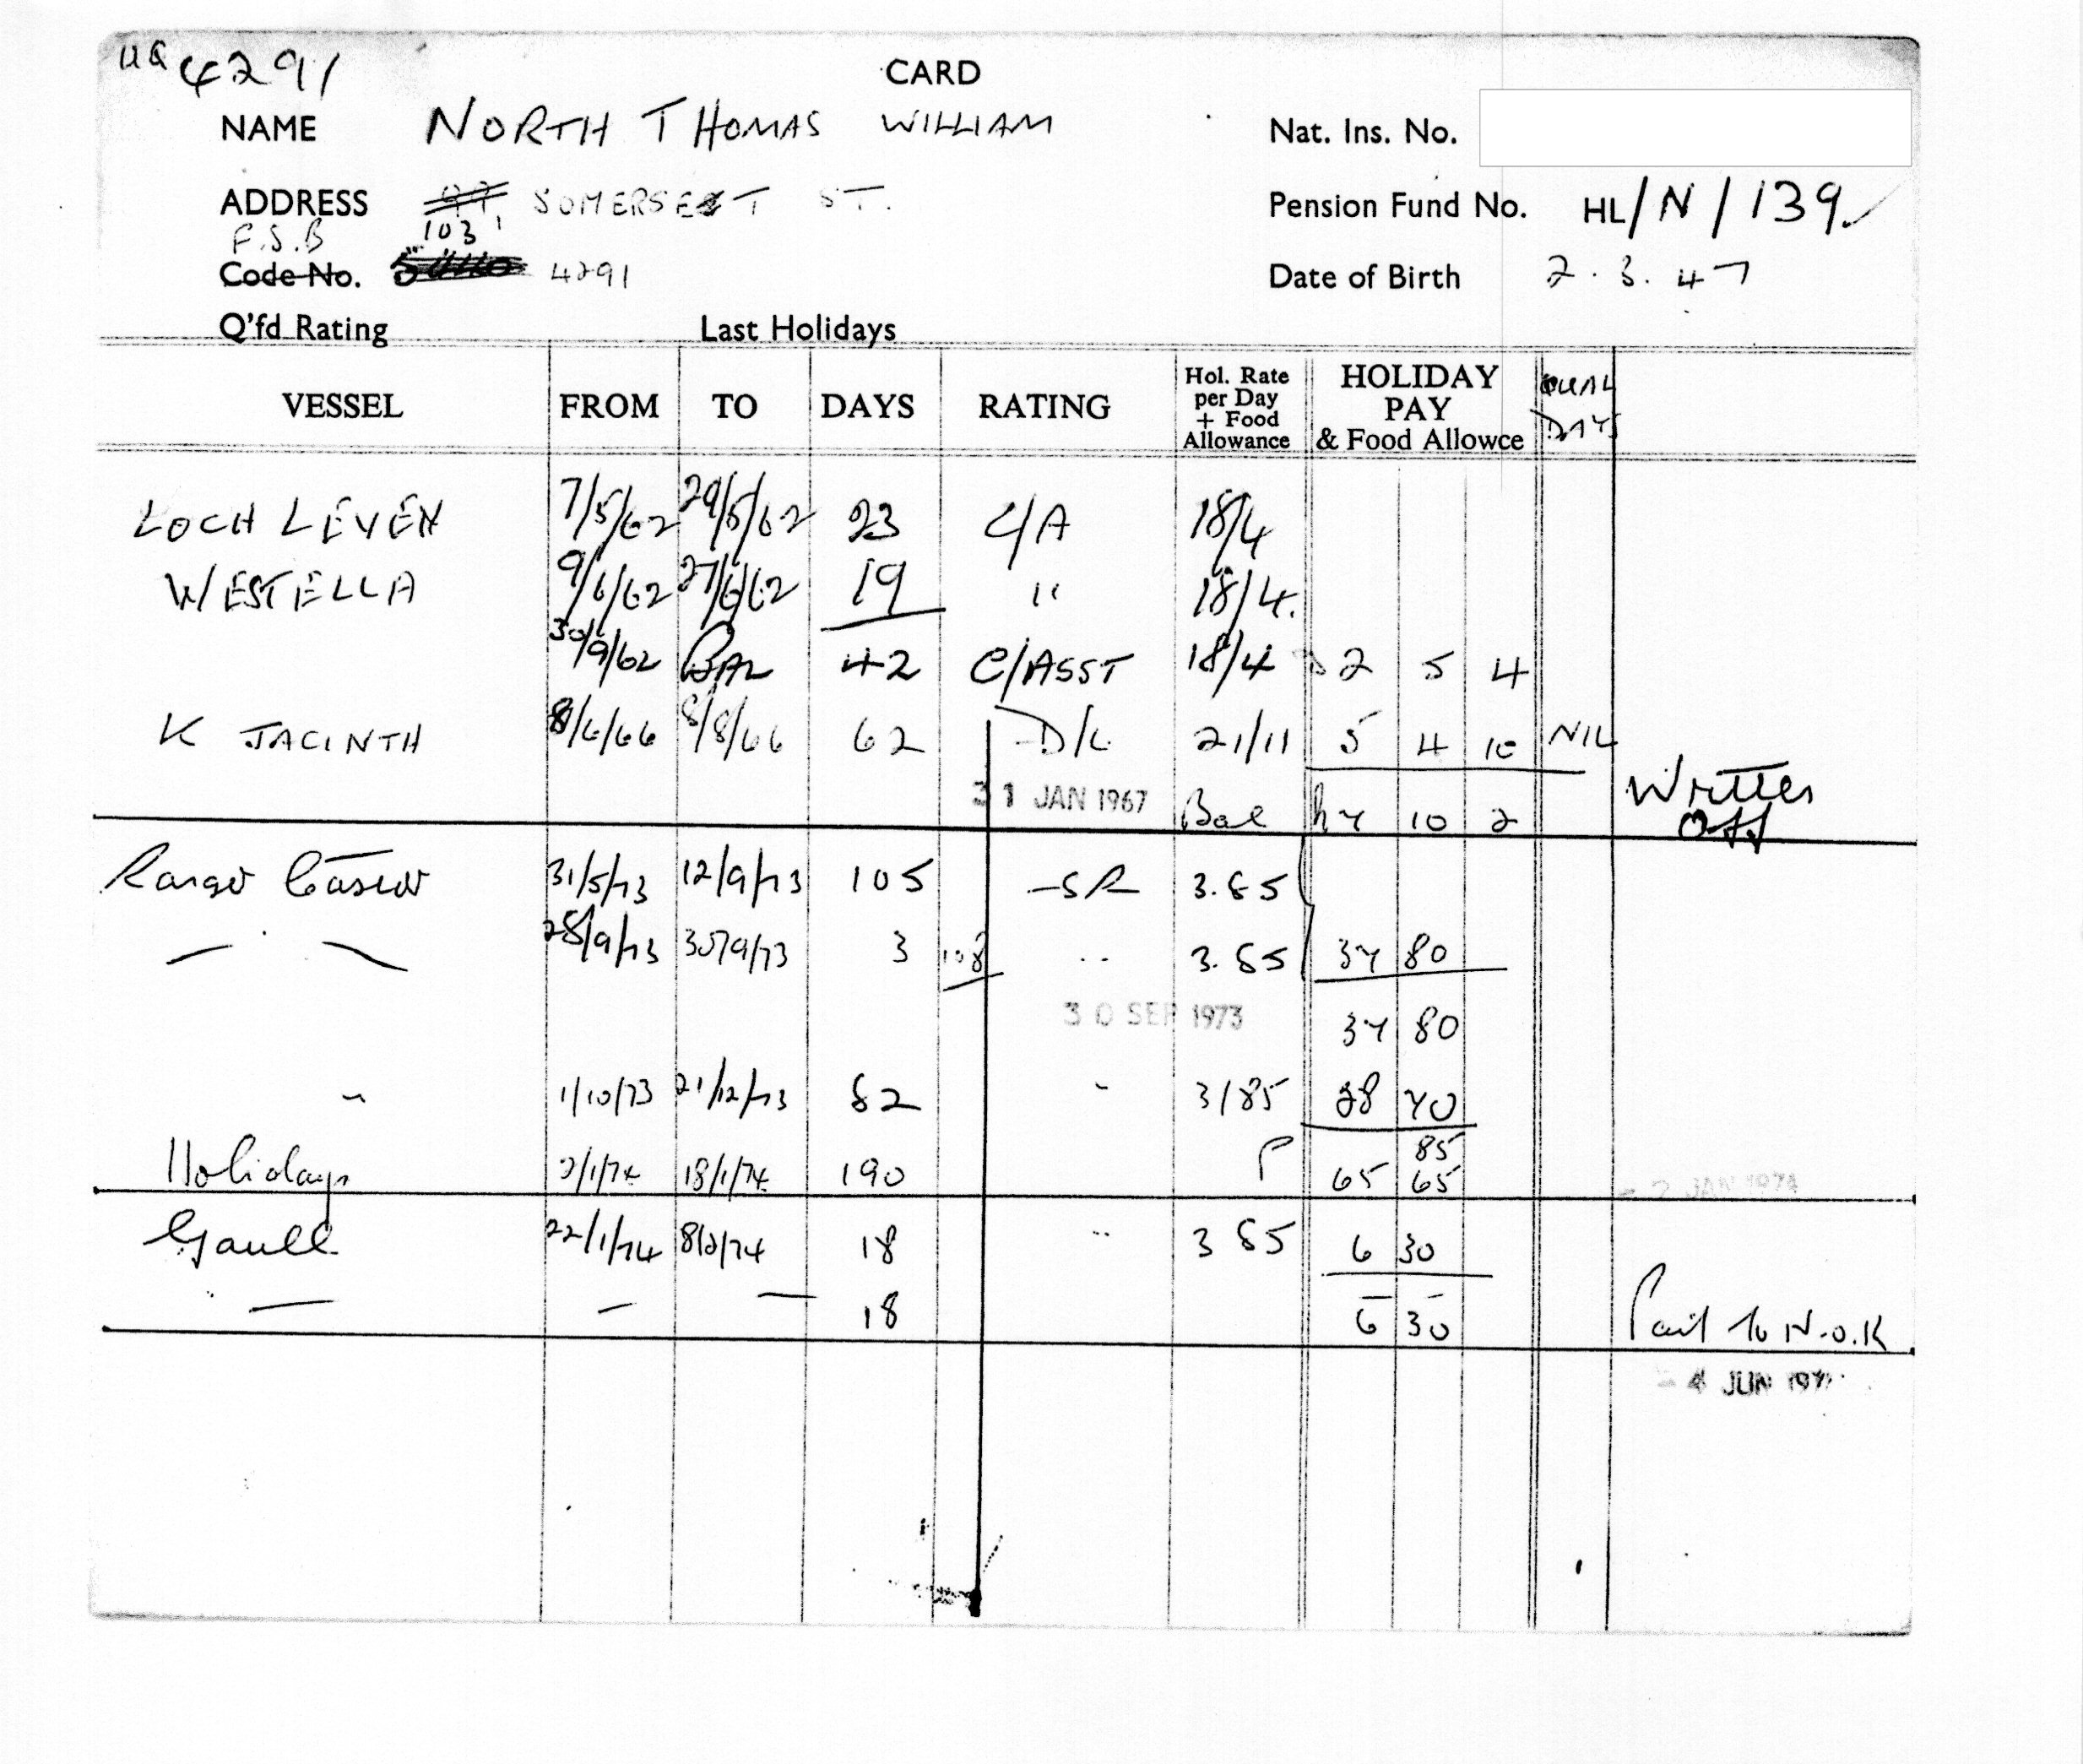 HQ 4291
CARD
NAME NORTH THOMAS WILLIAM Nat. Ins. No.
ADDRESS SOMERSET ST. Pension Fund No. HL/N/139
F.S.B 103
Code No. 4291 Date of Birth 2.3.47
Q'fd Rating Last Holidays
VESSEL FROM TO DAYS RATING Hol. Rate per Day + Food Allowance HOLIDAY PAY & Food Allowce QUAL DAYS
LOCH LEVEN 7/5/62 29/5/62 23 C/A 18/4
WESTELLA 9/6/62 27/6/62 19 " 18/4.
30/9/62 BAL 42 C/ASST 18/4 2 5 4
K JACINTH 8/6/66 8/8/66 62 D/L 21/11 5 4 10 NIL
31 JAN 1967 Bal 10 2 Written Off
Ranger Castor 31/5/73 12/9/73 105 SR 3.85
28/9/73 30/9/73 3 108 " 3.85 37 80
30 SEP 1973 37 80
" 1/10/73 21/12/73 82 " 3/85 28 70
85
Holidays 2/1/74 18/1/74 190 P 65 65 2 JAN 1974
Gaull 22/1/74 8/2/74 18 " 3 85 6 30
— — — 18 6 30 Paid to N.O.K
4 JUN